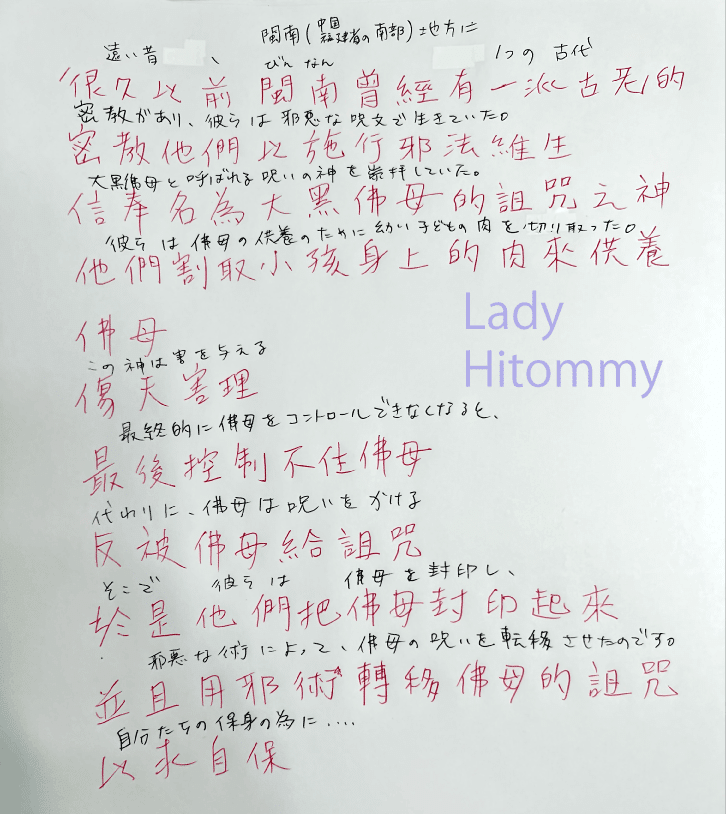 閩南(中国福建省の南部)地方に
遠い昔、 びんなん 1つの 古代
很久以前閩南曾經有一派古老的
密教があり、彼らは邪悪な呪文で生きていた。
密教他們以施行邪法維生
大黒佛母と呼ばれる呪いの神を崇拝していた。
信奉名為大黑佛母的詛咒之神
彼らは佛母の供養のために幼い子どもの肉を切り取った。
他們割取小孩身上的肉來供養
佛母
この神は害を与える
傷天害理
最終的に佛母をコントロールできなくなると、
最後控制不住佛母
代わりに、佛母は呪いをかける
反被佛母給詛咒
そこで 彼らは 佛母を封印し、
於是他們把佛母封印起來
邪悪な術によって、佛母の呪いを転移させたのです。
並且用邪術轉移佛母的詛咒
自分たちの保身の為に....
以求自保
Lady
Hitommy